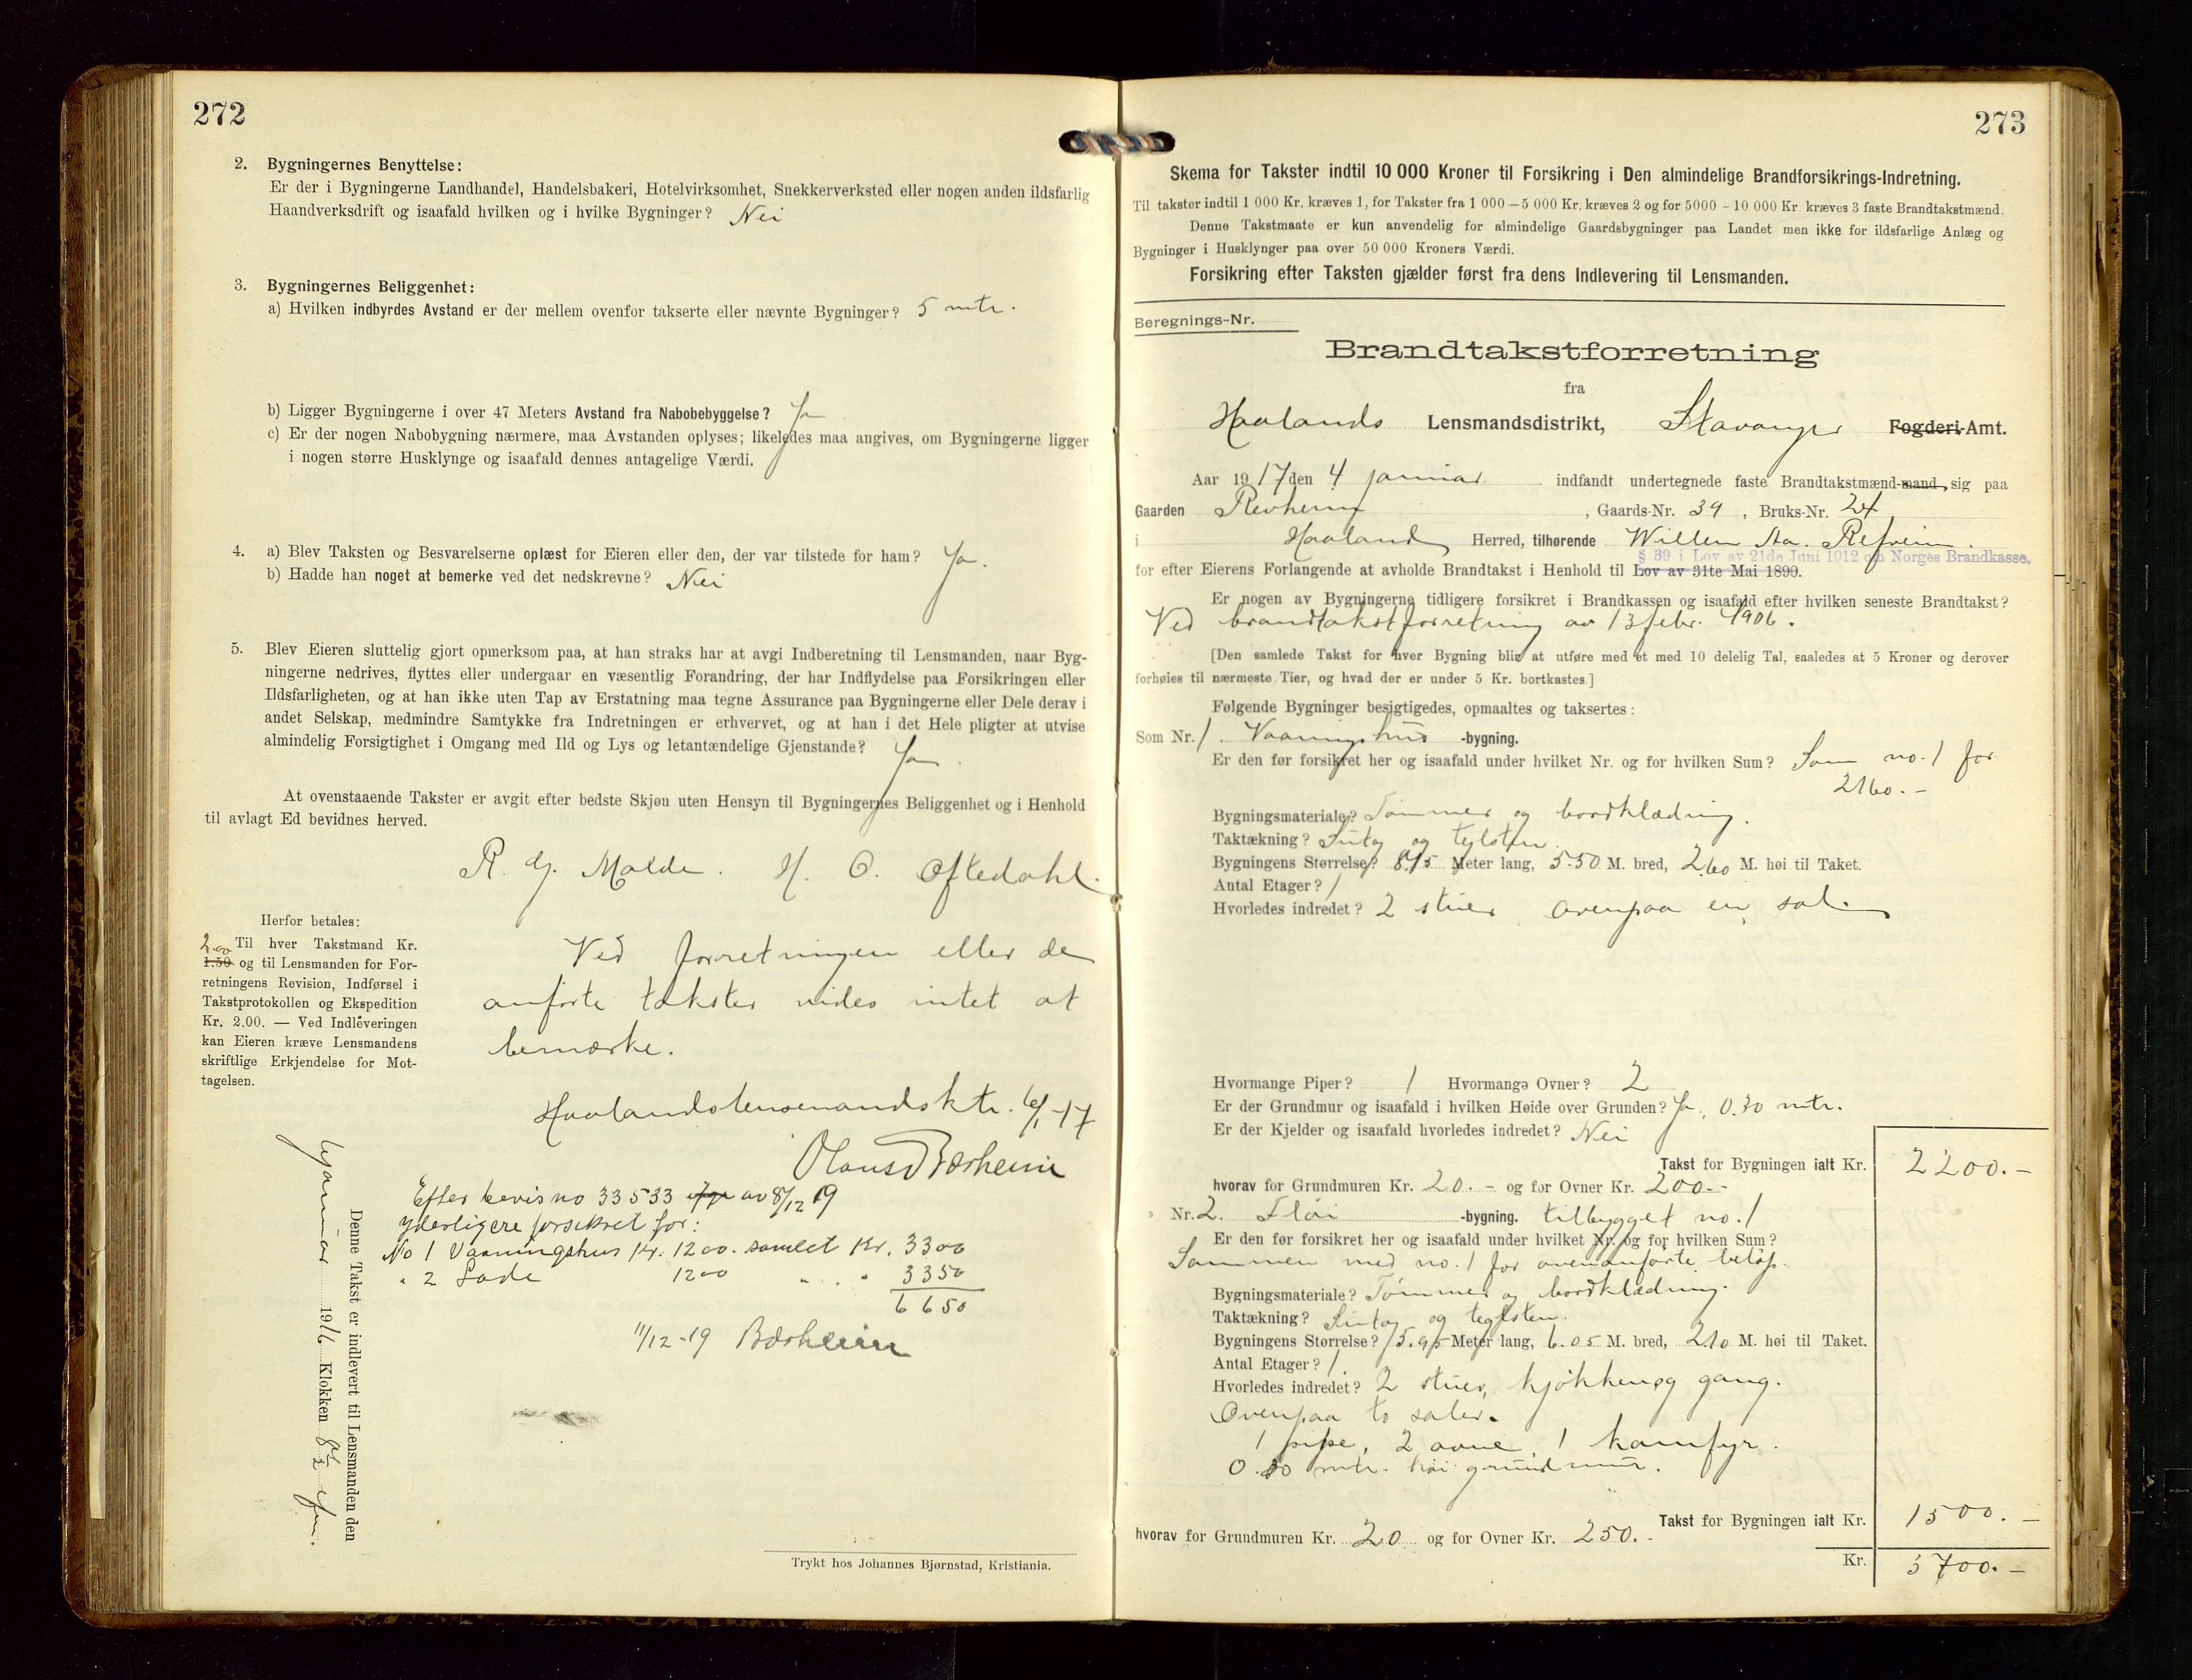 272
2. Bygningernes Benyttelse:
Er der i Bygningerne Landhandel, Handelsbakeri, Hotelvirksomhet, Snekkerverksted eller nogen anden ildsfarlig
Haandverksdrift og isaafald hvilken og i hvilke Bygninger? Nei
3. Bygningernes Beliggenhet:
a) Hvilken indbyrdes Avstand er der mellem ovenfor takserte eller nævnte Bygninger? 5 mtr.
b) Ligger Bygningerne i over 47 Meters Avstand fra Nabobebyggelse? Ja
c) Er der nogen Nabobygning nærmere, maa Avstanden oplyses; likeledes maa angives, om Bygningerne ligger
i nogen større Husklynge og isaafald dennes antagelige Værdi.
4. a) Blev Taksten og Besvarelserne oplæst for Eieren eller den, der var tilstede for ham? Ja.
b) Hadde han noget at bemerke ved det nedskrevne? Nei
5. Blev Eieren sluttelig gjort opmerksom paa, at han straks har at avgi Indberetning til Lensmanden, naar Byg-
ningerne nedrives, flyttes eller undergaar en væsentlig Forandring, der har Indflydelse paa Forsikringen eller
Ildsfarligheten, og at han ikke uten Tap av Erstatning maa tegne Assurance paa Bygningerne eller Dele derav i
andet Selskap, medmindre Samtykke fra Indretningen er erhvervet, og at han i det Hele pligter at utvise
almindelig Forsigtighet i Omgang med Ild og Lys og letantændelige Gjenstande? Ja.
At ovenstaaende Takster er avgit efter bedste Skjøn uten Hensyn til Bygningernes Beliggenhet og i Henhold
til avlagt Ed bevidnes herved.
R. G. Molde. H. O. Oftedahl.
Herfor betales:
2.00 Til hver Takstmand Kr.
1.50 og til Lensmanden for For-
retningens Revision, Indførsel i
Takstprotokollen og Ekspedition
Kr. 2.00. — Ved Indleveringen
kan Eieren kræve Lensmandens
skriftlige Erkjendelse for Mot-
tagelsen.
Ved forretningen eller de
anførte takster vides intet at
bemærke.
Haalandslensmandsktr. 6/1-17
Olaus Bærheim
Efter bevis no 33533 av 8/12 19
yderligere forsikret for:
No 1 Vaaningshus Kr. 1200. samlet Kr. 3300
" 2 Lade 1200 " . " 3350
6650
11/12-19 Bærheim
Denne Takst er indlevert til Lensmanden den
6 januar 1916 Klokken 8 1/2 efm.
Trykt hos Johannes Bjørnstad, Kristiania.
273
Skema for Takster indtil 10 000 Kroner til Forsikring i Den almindelige Brandforsikrings-Indretning.
Til takster indtil 1 000 Kr. kræves 1, for Takster fra 1 000 – 5 000 Kr. kræves 2 og for 5000 – 10 000 Kr kræves 3 faste Brandtakstmænd.
Denne Takstmaate er kun anvendelig for almindelige Gaardsbygninger paa Landet men ikke for ildsfarlige Anlæg og
Bygninger i Husklynger paa over 50 000 Kroners Værdi.
Forsikring efter Taksten gjælder først fra dens Indlevering til Lensmanden.
Beregnings-Nr.
Brandtakstforretning
fra
Haalands Lensmandsdistrikt, Stavanger Fogderi-Amt.
Aar 1917 den 4 januar indfandt undertegnede faste Brandtakstmænd-mand sig paa
Gaarden Revheim, Gaards-Nr. 39, Bruks-Nr. 24
i Haaland Herred, tilhørende Willem Aa. Refheim.
§ 39 i Lov av 21de Juni 1912 om Norges Brandkasse.
for efter Eierens Forlangende at avholde Brandtakst i Henhold til Lov av 31te Mai 1899.
Er nogen av Bygningerne tidligere forsikret i Brandkassen og isaafald efter hvilken seneste Brandtakst?
Ved brandtakstforretning av 13 febr. 1906.
[Den samlede Takst for hver Bygning blir at utføre med et med 10 delelig Tal, saaledes at 5 Kroner og derover
forhøies til nærmeste Tier, og hvad der er under 5 Kr. bortkastes.]
Følgende Bygninger besigtigedes, opmaaltes og taksertes:
Som Nr. 1 Vaaningshus -bygning.
Er den før forsikret her og isaafald under hvilket Nr. og for hvilken Sum? Som no. 1 for
2160.-
Bygningsmateriale? Tømmer og bordklædning.
Taktækning? Sutag og teglsten.
Bygningens Størrelse? 8.75 Meter lang, 5.50 M. bred, 2.60 M. høi til Taket.
Antal Etager? 1
Hvorledes indredet? 2 stuer ovenpaa en sal.
Hvormange Piper? 1 Hvormange Ovner? 2
Er der Grundmur og isaafald i hvilken Høide over Grunden? Ja, 0.30 mtr.
Er der Kjelder og isaafald hvorledes indredet? Nei
Takst for Bygningen ialt Kr. 2200.-
hvorav for Grundmuren Kr. 20.- og for Ovner Kr. 200.-
Nr. 2. Fløi -bygning. tilbygget no. 1
Er den før forsikret her og isaafald under hvilket Nr. og for hvilken Sum?
Sammen med no. 1 for ovenanførte beløp.
Bygningsmateriale? Tømmer og bordklædning.
Taktækning? Sutag og teglsten.
Bygningens Størrelse? 5.95 Meter lang, 6.05 M. bred, 2.10 M. høi til Taket.
Antal Etager? 1.
Hvorledes indredet? 2 stuer, kjøkken og gang.
Ovenpaa to saler.
1 pipe, 2 ovne, 1 komfyr.
0.30 mtr. høi grundmur.
Takst for Bygningen ialt Kr. 1500.-
hvorav for Grundmuren Kr. 20 og for Ovner Kr. 250.-
Kr. 3700.-